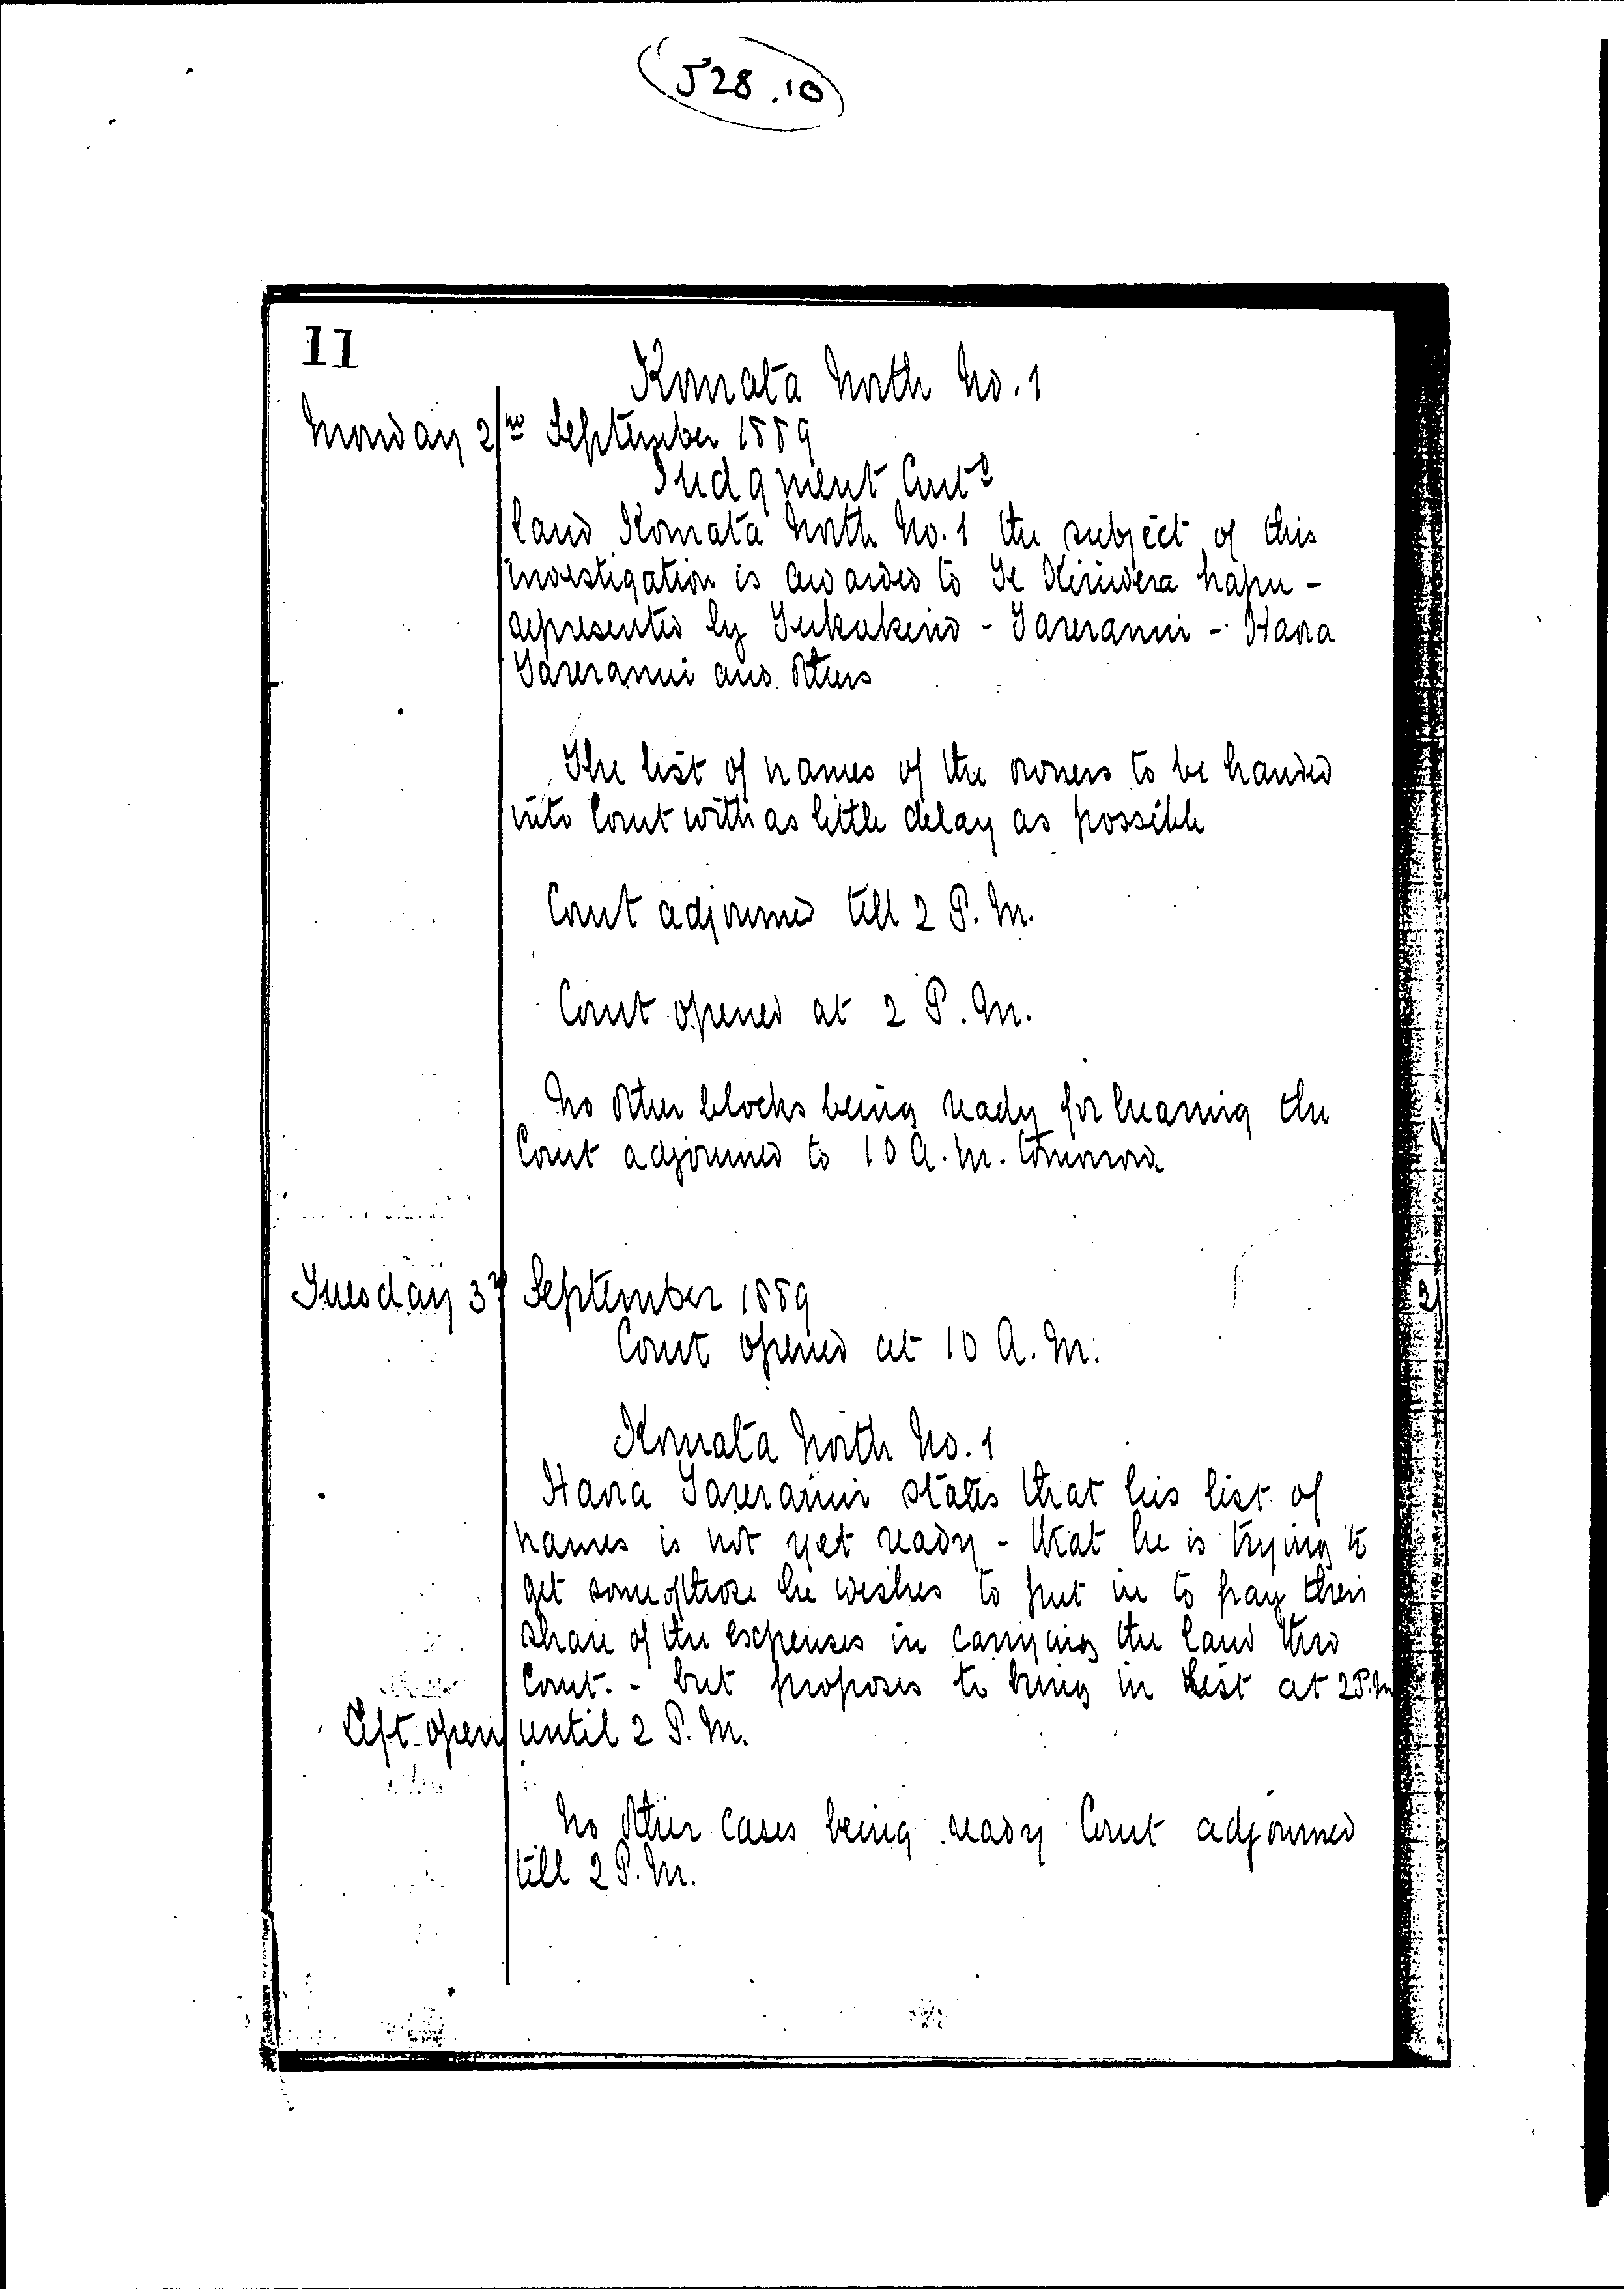 J28.10
11
Komata North No. 1
Monday 2nd September 1889
Judgment Contd
land Komata North No. 1 the subject of this
investigation is awarded to Te Kiriwera hapu -
represented by Tukukino - Tareranui - Haora
Tareranui and others
The list of names of the owners to be handed
into Court with as little delay as possible
Court adjourned till 2 P.M.
Court opened at 2 P.M.
No other blocks being ready for hearing the
Court adjourned to 10 A.M. tomorrow
Tuesday 3rd September 1889
Court opened at 10 A.M.
Komata North No. 1
Haora Tareranui states that his list of
names is not yet ready - that he is trying to
get some of those he wishes to put in to pay their
share of the expenses in carrying the land thro
Court. - but proposes to bring in list at 2 P.M
Left open until 2 P.M.
No other cases being ready Court adjourned
till 2 P.M.